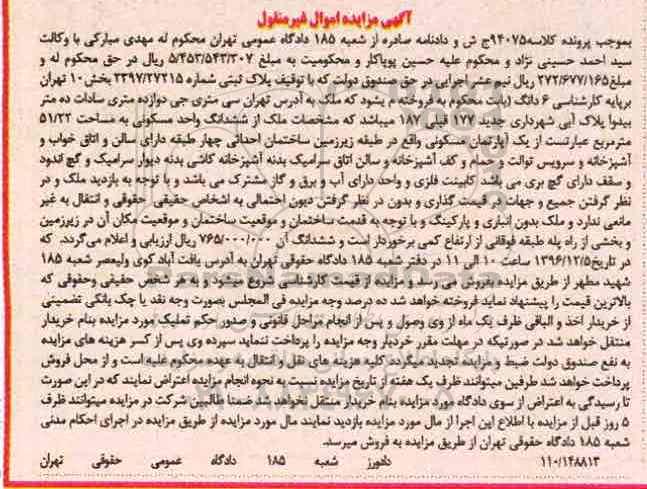 آگهی مزایده اموال غیرمنقول
بموجب پرونده کلاسه۹۴۰۷۵ج ش و دادنامه صادره از شعبه ۱۸۵ دادگاه عمومی تهران محکوم له مهدی مبارکی با وکالت
سید احمد حسینی نژاد و محکوم علیه حسین پویاکار و محکومیت به مبلغ ۵/۴۵۳/۵۴۳/۳۰۷ ریال در حق محکوم له و
مبلغ۲۷۲/۶۷۷/۱۶۵ ریال نیم عشر اجرایی در حق صندوق دولت که با توقیف پلاک ثبتی شماره ۲۳۹۷/۲۷۲۱۵ بخش۱۰ تهران
برپایه کارشناسی ۶ دانگ (بابت محکوم به فروخته م یشود که ملک به آدرس تهران سی متری جی دوازده متری سادات ده متر
بیدوا پلاک آبی شهرداری جدید ۱۷۷ قبلی ۱۸۷ میباشد که مشخصات ملک از ششدانگ واحد مسکونی به مساحت ۵۱/۲۲
مترمربع عبارتست از یک آپارتمان مسکونی واقع در طبقه زیرزمین ساختمان احداثی چهار طبقه دارای سالن و اتاق خواب و
آشپزخانه و سرویس توالت و حمام و کف آشپزخانه و سالن اتاق سرامیک بدنه آشپزخانه کاشی بدنه دیوار سرامیک و گچ اندود
و سقف دارای گچ بری می باشد کابینت فلزی و واحد دارای آب و برق و گاز مشترک می باشد و با توجه به بازدید ملک و در
نظر گرفتن جمیع و جهات در قیمت گذاری و بدون در نظر گرفتن دیون احتمالی به اشخاص حقیقی حقوقی و انتقال به غیر
مانعی ندارد و ملک بدون انباری و پارکینگ و با توجه به قدمت ساختمان و موقعیت ساختمان و موقعیت مکان آن در زیرزمین
و بخشی از راه پله طبقه فوقانی از ارتفاع کمی برخوردار است و ششدانگ آن ۷۶۵/۰۰۰/۰۰۰ ریال ارزیابی و اعلام می‌گردد. که
در تاریخ۱۳۹۶/۱۲/۵ ساعت ۱۰ الی ۱۱ در دفتر شعبه ۱۸۵ دادگاه حقوقی تهران به آدرس یافت آباد کوی ولیعصر شعبه ۱۸۵
شهید مطهر از طریق مزایده بفروش می رسد و مزایده از قیمت کارشناسی شروع میشود و به هر شخص حقیقی وحقوقی که
بالاترین قیمت را پیشنهاد نماید فروخته خواهد شد ده درصد وجه مزایده فی المجلس بصورت وجه نقد یا چک بانکی تضمینی
از خریدار اخذ و الباقی ظرف یک ماه از وی وصول و پس از انجام مراحل قانونی و صدور حکم تملیک مورد مزایده بنام خریدار
منتقل خواهد شد در صورتیکه در مهلت مقرر خریدار وجه مزایده را پرداخت ننماید سپرده وی پس از کسر هزینه های مزایده
به نفع صندوق دولت ضبط و مزایده تجدید میگردد کلیه هزینه های نقل و انتقال به عهده محکوم علیه است و از محل فروش
پرداخت خواهد شد طرفین میتوانند ظرف یک هفته از تاریخ مزایده نسبت به نحوه انجام مزایده اعتراض نمایند که در این صورت
تا رسیدگی به اعتراض از سوی دادگاه مورد مزایده بنام خریدار منتقل نخواهد شد ضمنا طالبین شرکت در مزایده میتوانند ظرف
۵ روز قبل از مزایده با اطلاع این اجرا از مال مورد مزایده بازدید نمایند مال مورد مزایده از طریق مزایده در اجرای احکام مدنی
شعبه ۱۸۵ دادگاه حقوقی تهران از طریق مزایده به فروش میرسد.
۱۱۰/۱۴۸۸۱۳ دادورز شعبه ۱۸۵ دادگاه عمومی حقوقی تهران